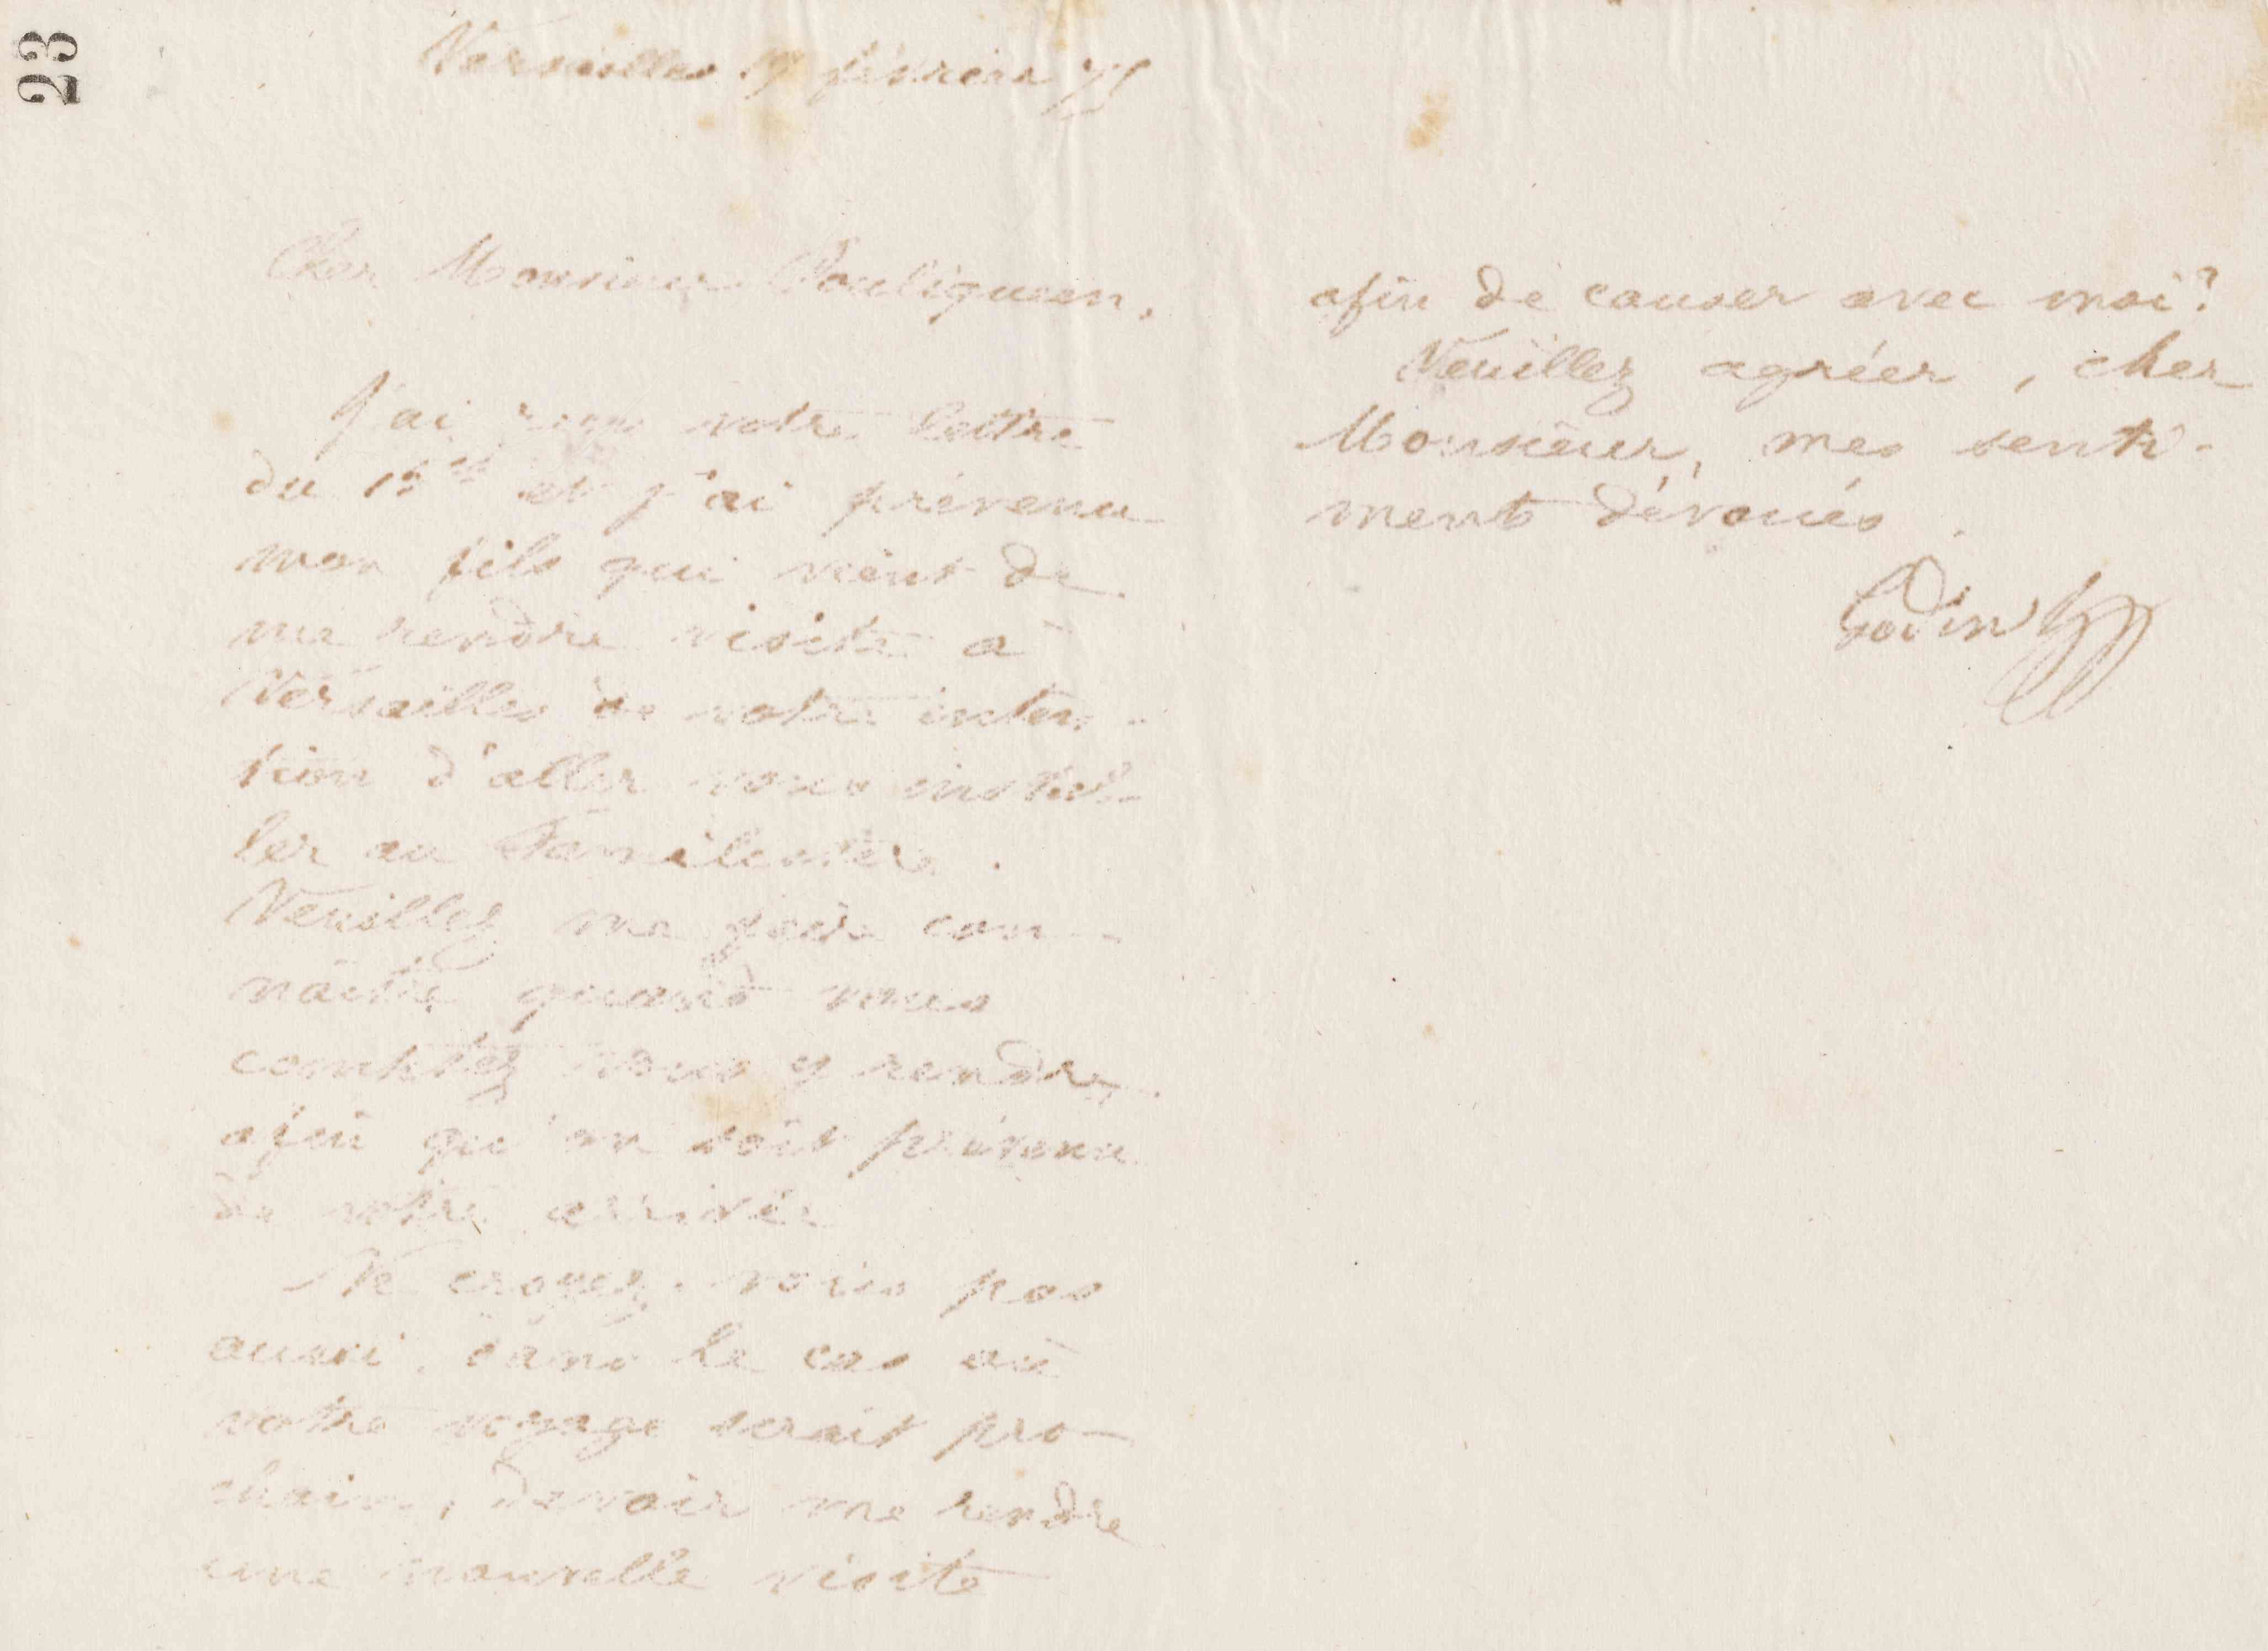 23
Versailles 17 février 75
Cher Monsieur Pouliquen,
J'ai reçu votre lettre
du 15 ct et j'ai prévenu
mon fils qui vient de
me rendre visite à
Versailles de votre inten-
tion d'aller vous instal-
ler au Familistère.
Veuillez me faire con-
naître quand vous
comptez vous y rendre
afin qu'on soit prévenu
de votre arrivée
Ne croyez-vous pas
aussi, dans le cas où
votre voyage serait pro-
chain, devoir me rendre
une nouvelle visite
afin de causer avec moi?
Veuillez agréer, cher
Monsieur, mes senti-
ments dévoués.
Godin